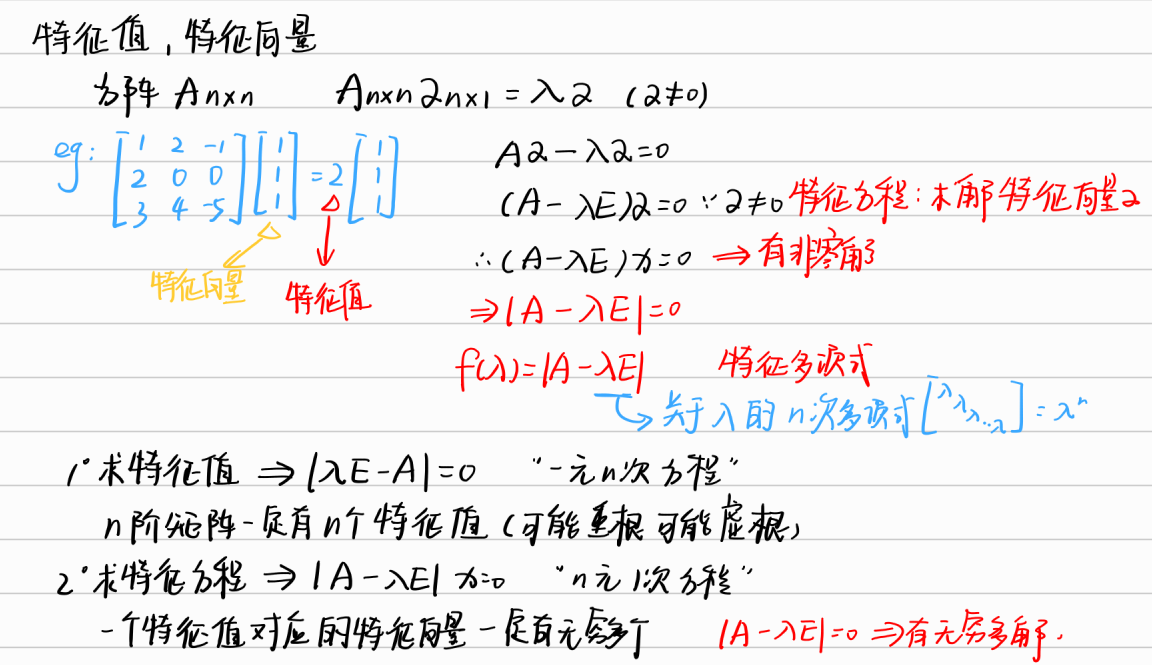 特征值，特征向量
方阵 Aₙₓₙ Aₙₓₙ αₙₓ₁ = λα (α≠0)
eg: [1 2 -1; 2 0 0; 3 4 -5][1; 1; 1] = 2[1; 1; 1]
Aα-λα=0
(A-λE)α=0 ∵α≠0 特征方程：求解特征向量α
∴(A-λE)x=0 ⇒有非零解
特征向量 特征值
⇒|A-λE|=0
f(λ)=|A-λE| 特征多项式
关于λ的n次多项式[λ λ λ ⋱ λ]=λⁿ
1°求特征值 ⇒|λE-A|=0 “一元n次方程”
n阶矩阵一定有n个特征值（可能重根 可能虚根）
2°求特征方程 ⇒|A-λE|x=0 “n元1次方程”
一个特征值对应的特征向量一定有无穷多个 |A-λE|=0 ⇒有无穷多解.